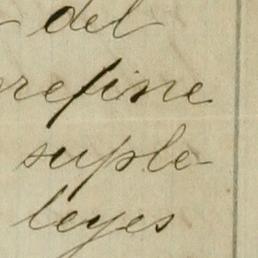 del
refine
suple-
leyes